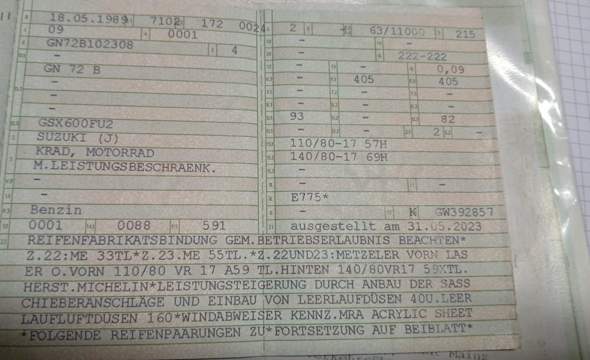 18.05.1989 7102 172 0024 2 63/11000 215
09 0001 - -
GN72B102308 4 - 222-222
- - - 0,09
GN 72 B - 405 405
- - -
- - -
- 93 82
GSX600FU2 - - 2 -
SUZUKI (J) 110/80-17 57H
KRAD, MOTORRAD 140/80-17 69H
M.LEISTUNGSBESCHRAENK. -
- - -
- E775*
Benzin - K GW392857
0001 0088 591 ausgestellt am 31.05.2023
REIFENFABRIKATSBINDUNG GEM.BETRIEBSERLAUBNIS BEACHTEN*
Z.22:ME 33TL*Z.23.ME 55TL.*Z.22UND23:METZELER VORN LAS
ER O.VORN 110/80 VR 17 A59 TL.HINTEN 140/80VR17 59XTL.
HERST.MICHELIN*LEISTUNGSTEIGERUNG DURCH ANBAU DER SASS
CHIEBERANSCHLÄGE UND EINBAU VON LEERLAUFDÜSEN 40U.LEER
LAUFLUFTDÜSEN 160*WINDABWEISER KENNZ.MRA ACRYLIC SHEET
*FOLGENDE REIFENPAARUNGEN ZU*FORTSETZUNG AUF BEIBLATT*